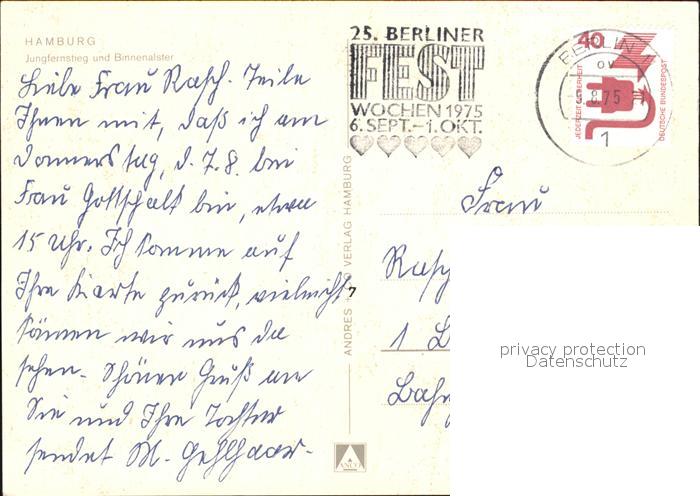 HAMBURG
Jungfernstieg und Binnenalster
Liebe Frau Rasch. Teile
Ihnen mit, daß ich am
Donnerstag, d. 7.8. bei
Frau Gottschalt bin, etwa
15 Uhr. Ich komme auf
Ihre Karte zurück, vielleicht
können wir uns da
sehen. Schöner Gruß an
Sie und Ihre Tochter
sendet M. Gehlhaar-
ANDRES VERLAG HAMBURG
7
ANCO
25. BERLINER
FEST
WOCHEN 1975
6. SEPT.-1. OKT.
BERLIN
ov
8.75
1
40
JEDERZEIT SICHERHEIT
DEUTSCHE BUNDESPOST
Frau
Rasch
1 B
Bahn
privacy protection
Datenschutz